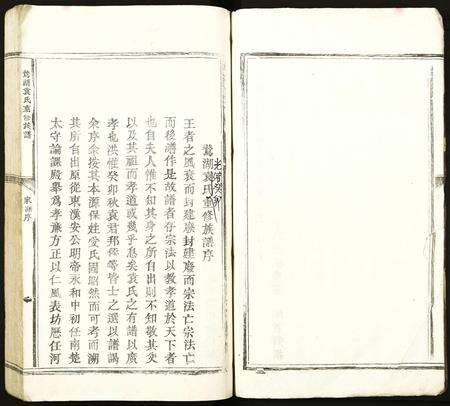 光緒癸卯
鶯湖袁氏重修族譜序
王者之風衰而封建廢封建廢而宗法亡宗法亡
而後譜作是故譜者存宗法以教孝道於天下者
也自夫人惟不知其身之所自出則不知敬其父
以及其祖而孝道或幾乎息矣袁氏之有譜以廣
孝也洪惟癸卯秋袁君邦 等皆士之選以譜謁
余序余按其本源保姓受氏固昭然而可考而溯
其所自出原從東漢安公明帝永和中初任南楚
太守論課殿舉為孝廉方正以仁風表坊歷任河
鶯湖袁氏重修族譜
序